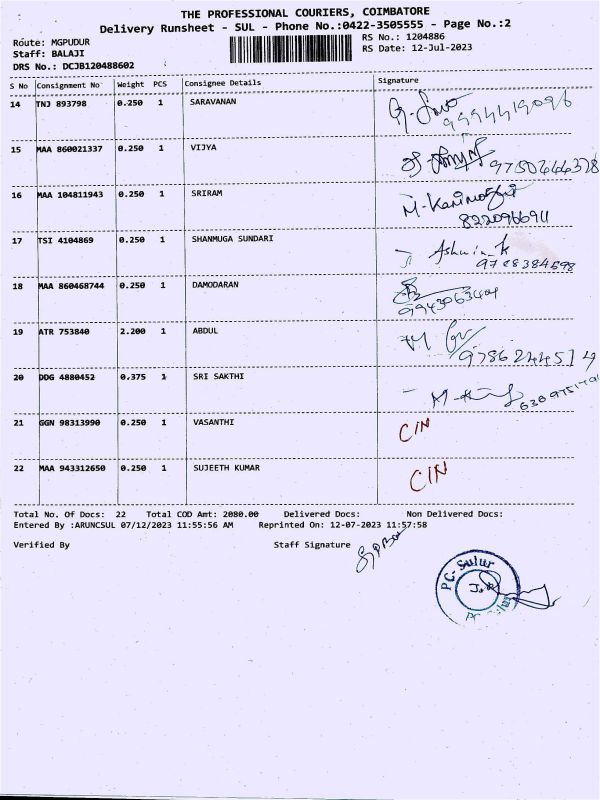 THE PROFESSIONAL COURIERS, COIMBATORE
Delivery Runsheet - SUL - Phone No.:0422-3505555 - Page No.:2
Route: MGPUDUR RS No.: 1204886
Staff: BALAJI RS Date: 12-Jul-2023
DRS No.: DCJB120488602
S No Consignment No Weight PCS Consignee Details Signature
14 TNJ 893798 0.250 1 SARAVANAN
9994419096
15 MAA 860021337 0.250 1 VIJYA
16 MAA 104811943 0.250 1 SRIRAM
8220966911
17 TSI 4104869 0.250 1 SHANMUGA SUNDARI Ashwin.k
18 MAA 860468744 0.250 1 DAMODARAN
9943063404
19 ATR 753840 2.200 1 ABDUL
9786244574
20 DDG 4880452 0.375 1 SRI SAKTHI
21 GGN 98313990 0.250 1 VASANTHI CIN
22 MAA 943312650 0.250 1 SUJEETH KUMAR CIN
Total No. Of Docs: 22 Total COD Amt: 2080.00 Delivered Docs: Non Delivered Docs:
Entered By :ARUNCSUL 07/12/2023 11:55:56 AM Reprinted On: 12-07-2023 11:57:58
Verified By Staff Signature
PC- Sulur